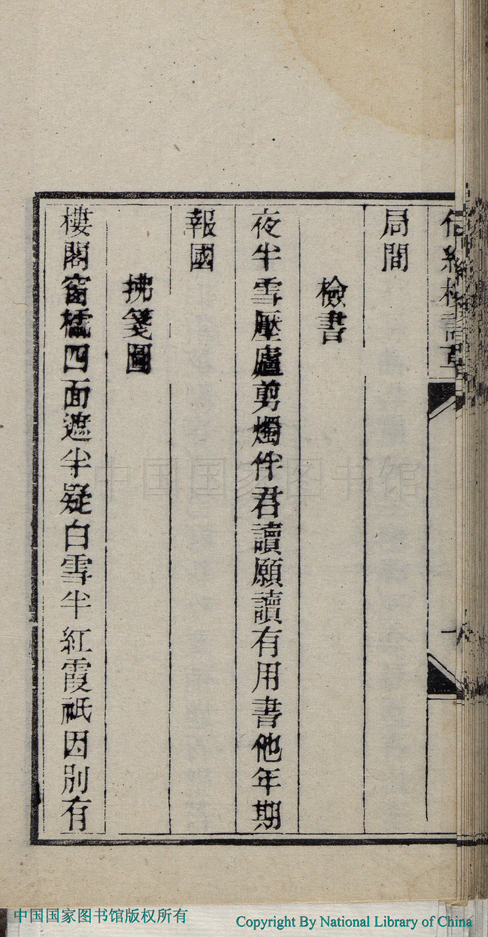 局間
檢書
夜半雪壓廬剪燭伴君讀願讀有用書他年期
報國
拂箋圖
樓閣窗櫺四面遮半疑白雪半紅霞祇因別有
中国国家图书馆
中国国家图书馆版权所有
Copyright By National Library of China